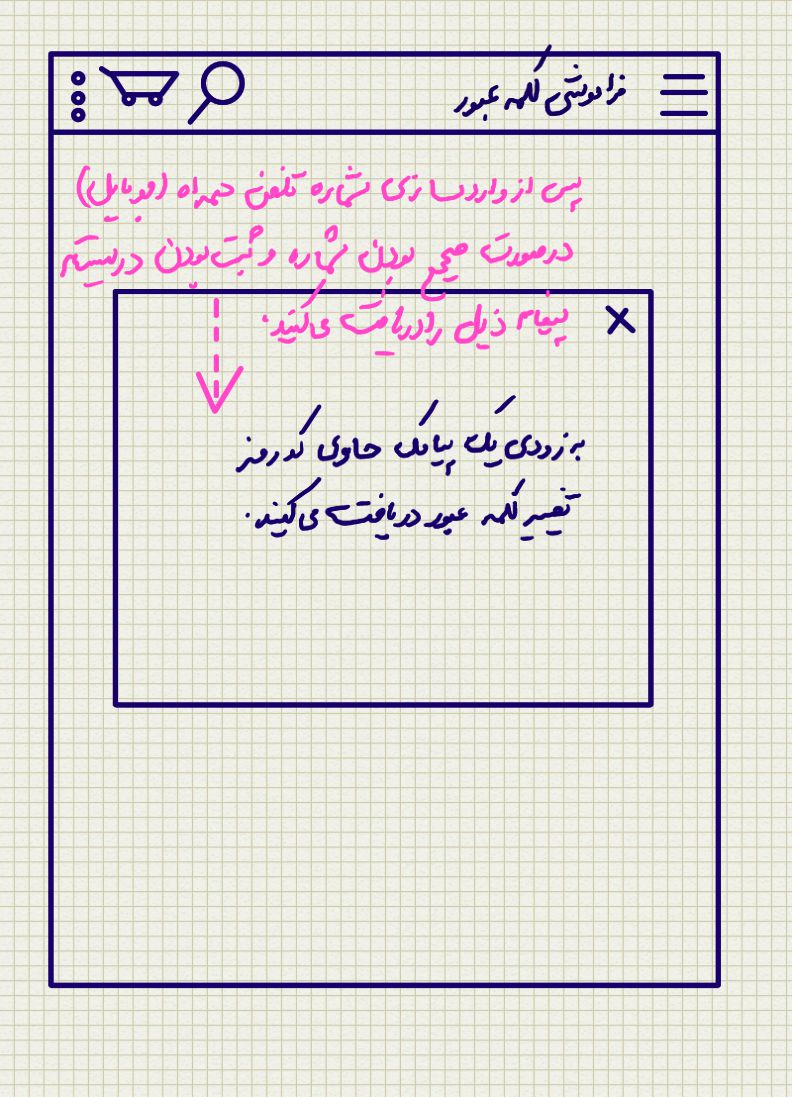 فراموشی کلمه عبور
پس از واردسازی شماره تلفن همراه (موبایل)
درصورت صحیح بودن شماره و ثبت بودن در سیستم
پیغام ذیل را دریافت می‌کنید.
بزودی یک پیامک حاوی کد رمز
تغییر کلمه عبور دریافت می‌کنید.